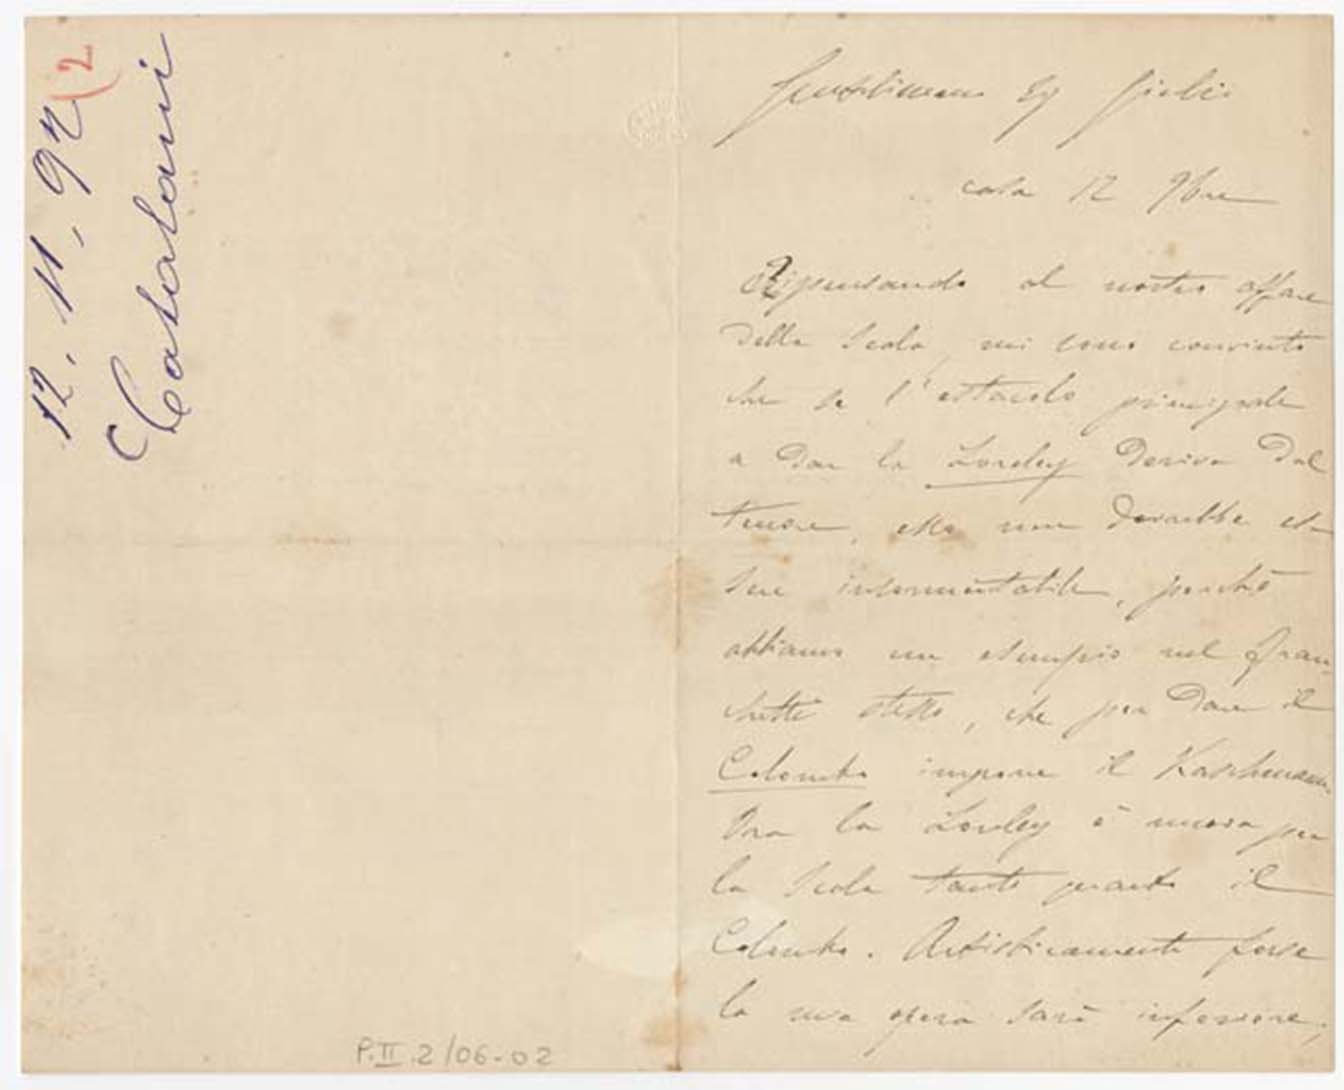 12. 11. 92
(2
Catalani
P.II.2/06-02
Gentilissimo Sig Giulio
casa 12 9bre
Ripensando al nostro affare
della Scala, mi sono convinto
che se l'ostacolo principale
a dar la Loreley deriva dal
tenore, esso non dovrebbe es
sere insormontabile, perchè
abbiamo un esempio nel Fran
chetti stesso, che per dare il
Colombo impone il Kaschmann.
Ora la Loreley è nuova per
la Scala tanto quanto il
Colombo. Artisticamente forse
la mia opera sarà inferiore,